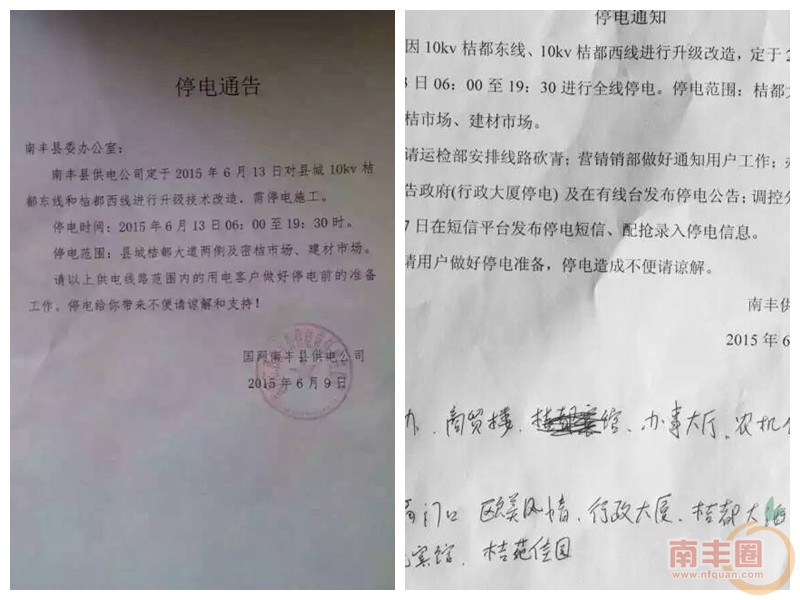 停电通告
南丰县委办公室：
南丰县供电公司定于2015年6月13日对县城10kv桔
都东线和桔都西线进行升级技术改造，需停电施工。
停电时间：2015年6月13日06：00至19：30时。
停电范围：县城桔都大道两侧及密桔市场、建材市场。
请以上供电线路范围内的用电客户做好停电前的准备
工作。停电给你带来不便请谅解和支持！
国网南丰县供电公司
2015年6月9日
停电通知
因10kv桔都东线、10kv桔都西线进行升级改造，定于2
3日06：00至19：30进行全线停电。停电范围：桔都大
桔市场、建材市场。
请运检部安排线路砍青；营销销部做好通知用户工作；办
告政府(行政大厦停电)及在有线台发布停电公告；调控分
7日在短信平台发布停电短信、配抢录入停电信息。
请用户做好停电准备，停电造成不便请谅解。
南丰供
2015年6
办、商贸楼、馆、办事大厅、农机
门口 欧美风情、行政大厦、桔都大
宾馆、桔苑佳园
南丰圈
www.nfquan.com